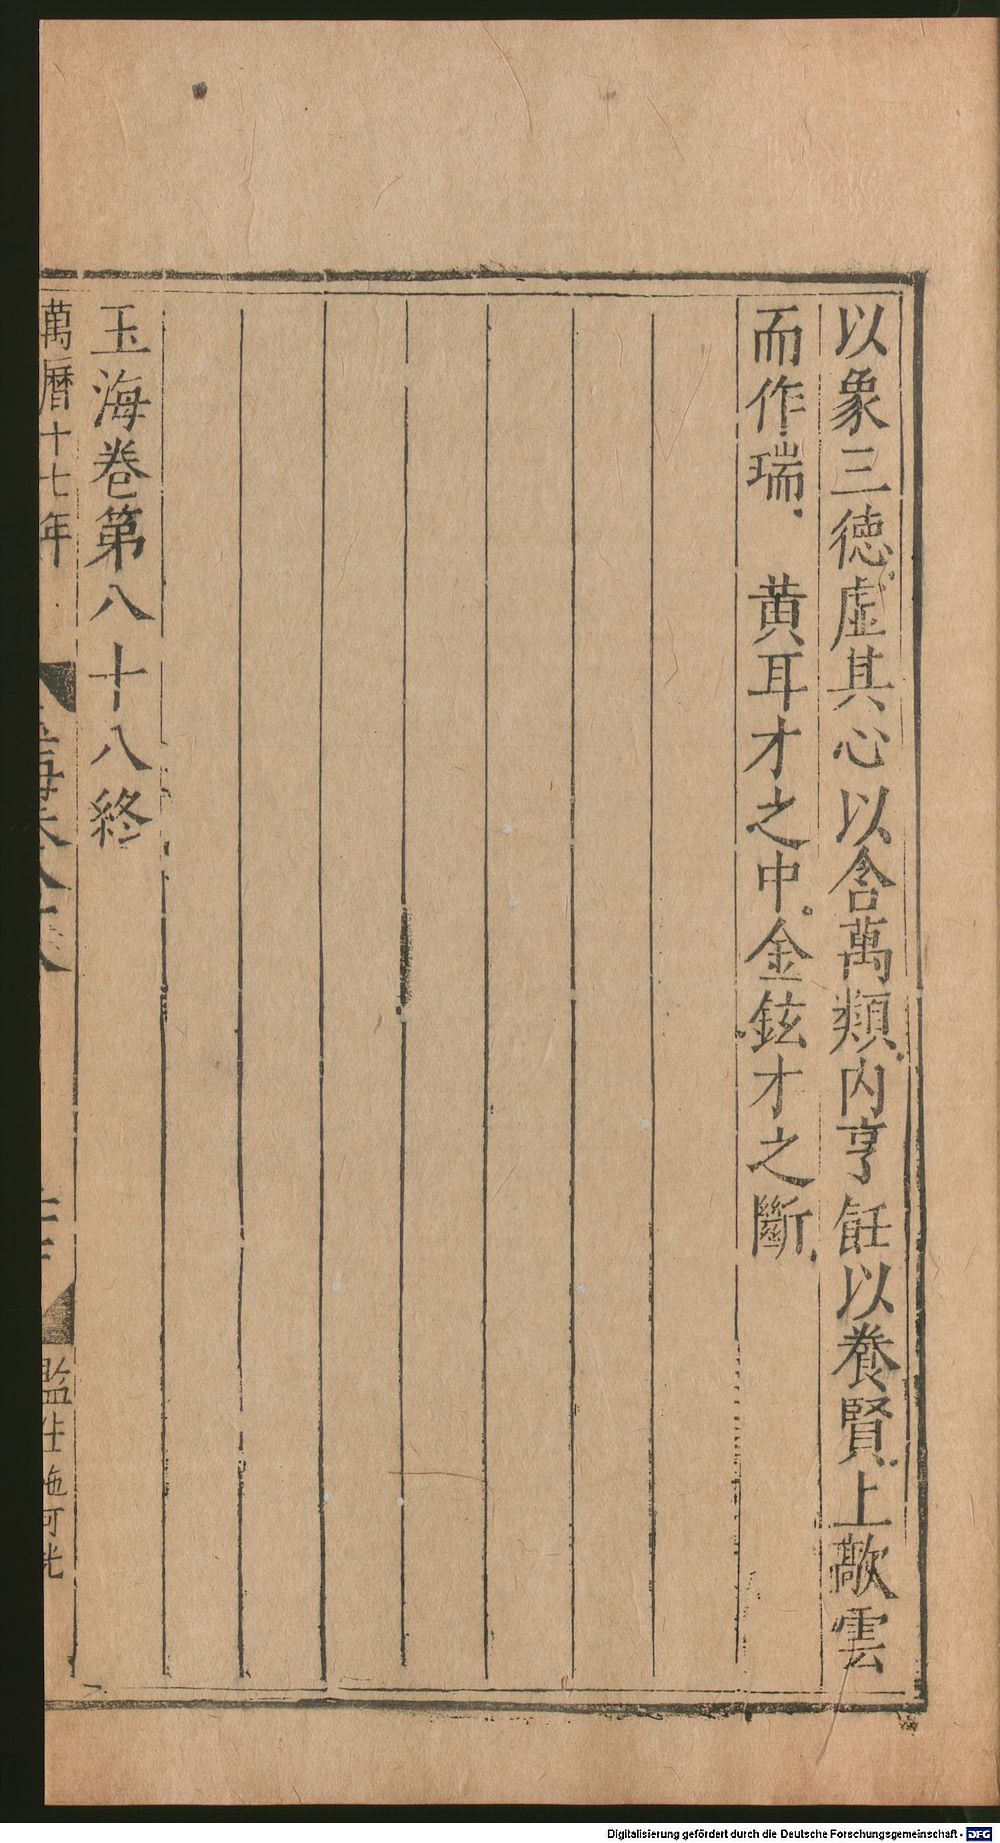 以象三徳虛其心以含萬類内亨飪以養賢上歊雲
而作瑞 黄耳才之中金鉉才之斷
玉海卷第八十八終
萬曆十七年
海卷八十八
監生施可
Digitalisierung gefördert durch die Deutsche Forschungsgemeinschaft - DFG